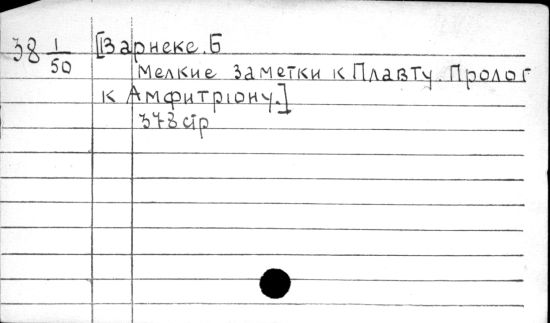 38 1/50 [Варнеке. Б
Мелкие заметки к Плавту. Пролог
к Амфитріону.]
378 стр